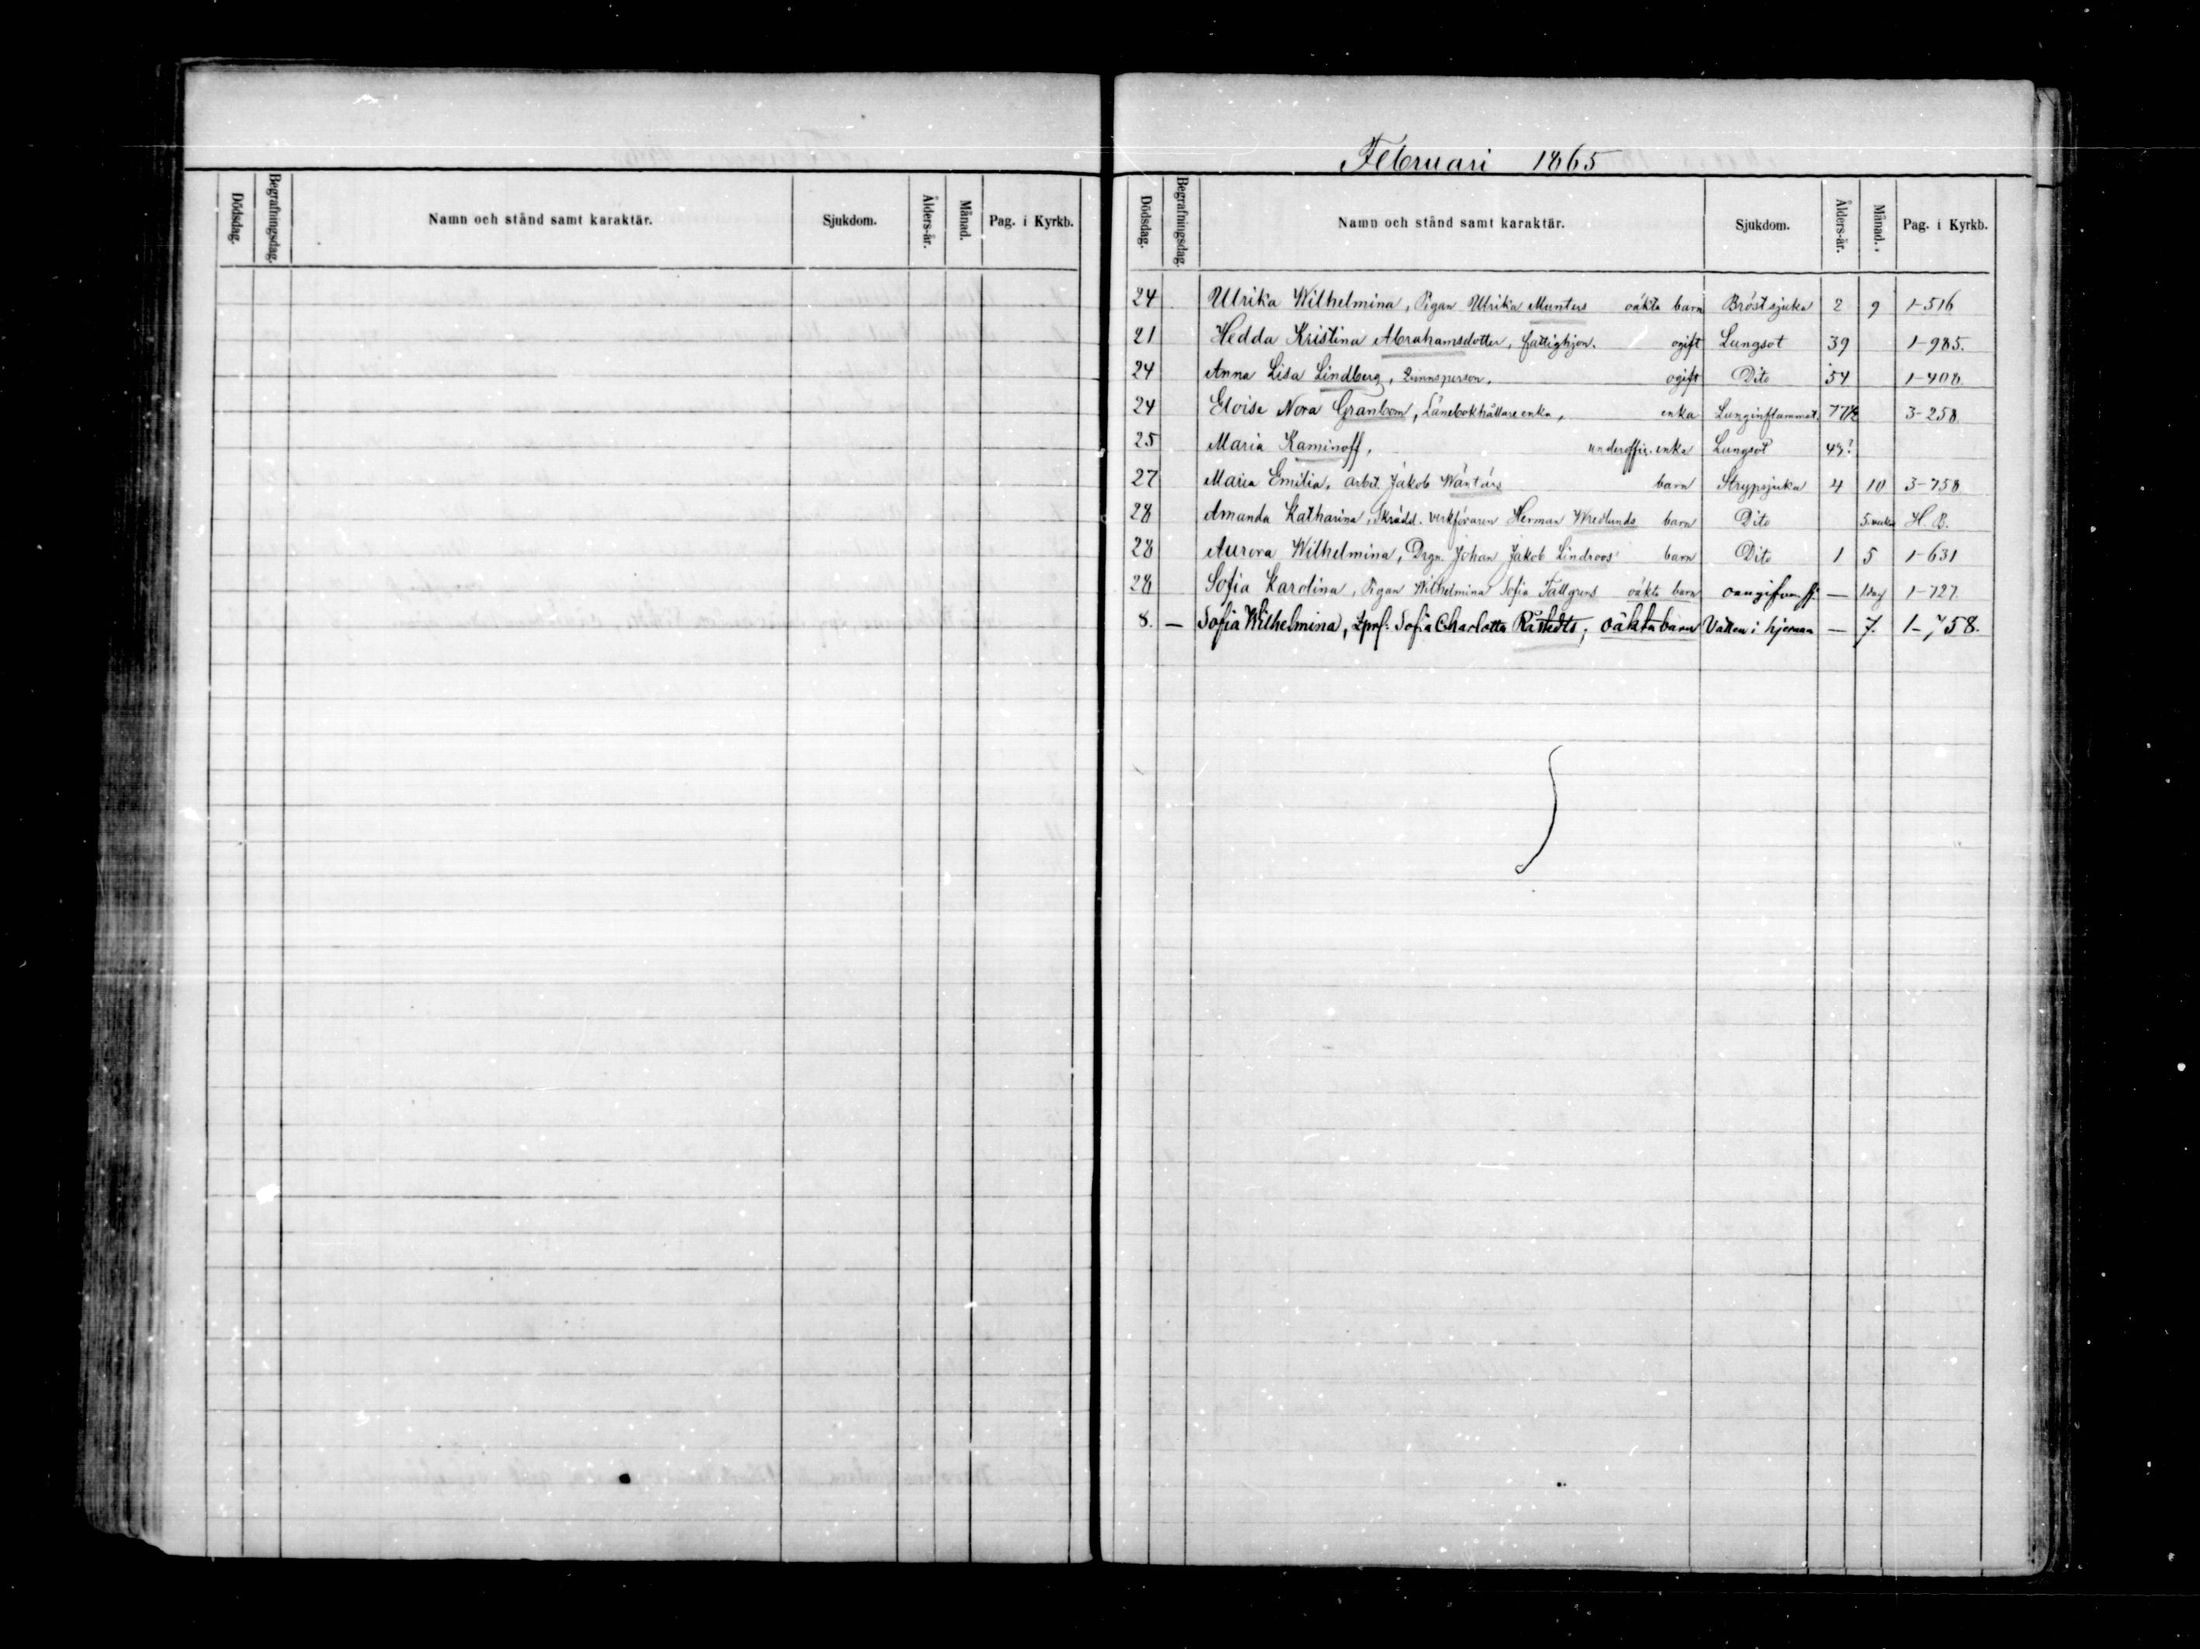 Dödsdag. Begrafningsdag. Namn och stånd samt karaktär. Sjukdom. Ålders-år. Månad. Pag. i Kyrkb.
Februari 1865
Dödsdag. Begrafningsdag. Namn och stånd samt karaktär. Sjukdom. Ålders-år. Månad. Pag. i Kyrkb.
24 Ulrika Wilhelmina, Pigan Ulrika Munters oäkta barn Bröstsjuka 2 9 1-516
21 Hedda Kristina Abrahamsdotter, fattighjon. ogift Lungsot 39 1-985.
24 Anna Lisa Lindberg, Qvinnsperson, ogift Dito 54 1-408.
24 Eloise Nora Granbom, Länebokhållare enka, enka Lunginflammat. 77½ 3-258.
25 Maria Kaminoff, underoffic. enka Lungsot 49?
27 Maria Emilia, arbet. Jakob Wäntärs barn Strypsjuka 4 10 3-758.
28 Amanda Katharina, Skrädd. verkföraren Herman Wredlunds barn Dito 5 veckor H. B.
28 Aurora Wilhelmina, Drgn. Johan Jakob Lindroos' barn Dito 1 5 1-631
28 Sofia Karolina, Pigan Wilhelmina Sofia Tallgrens oäkta barn oangifven — 1 dag 1-727.
8. — Sofia Wilhelmina, Sofia Charlotta Råstedts, oäkta barn Vatten i hjernan — 7. 1-758.